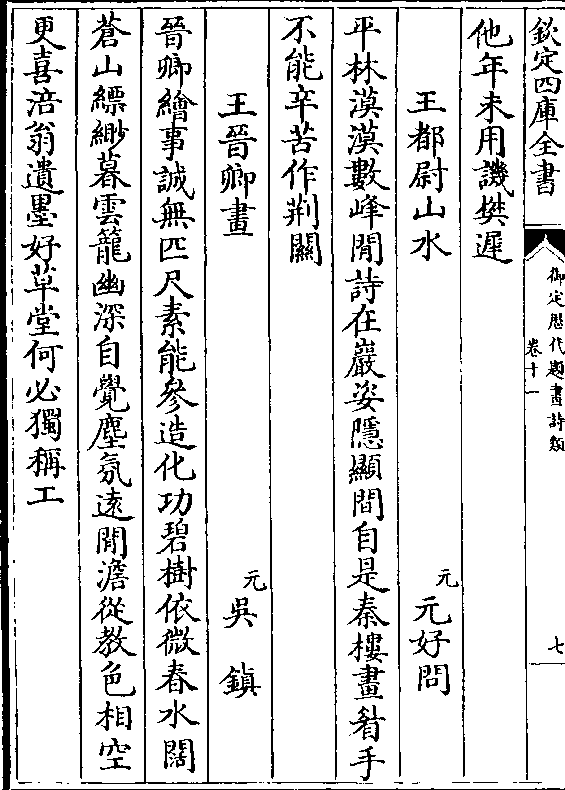 欽定四庫全書
御定歷代題畫詩類
卷十一
七
他年未用譏樊遲
王都尉山水 元 元好問
平林漠漠數峰閒詩在巖姿隱顯間自是秦樓畫眉手
不能辛苦作荆關
王晉卿畫 元 吳鎮
晉卿繪事誠無匹尺素能參造化功碧樹依微春水闊
蒼山縹緲暮雲籠幽深自覺塵氛遠閒澹從教色相空
更喜涪翁遺墨好草堂何必獨稱工